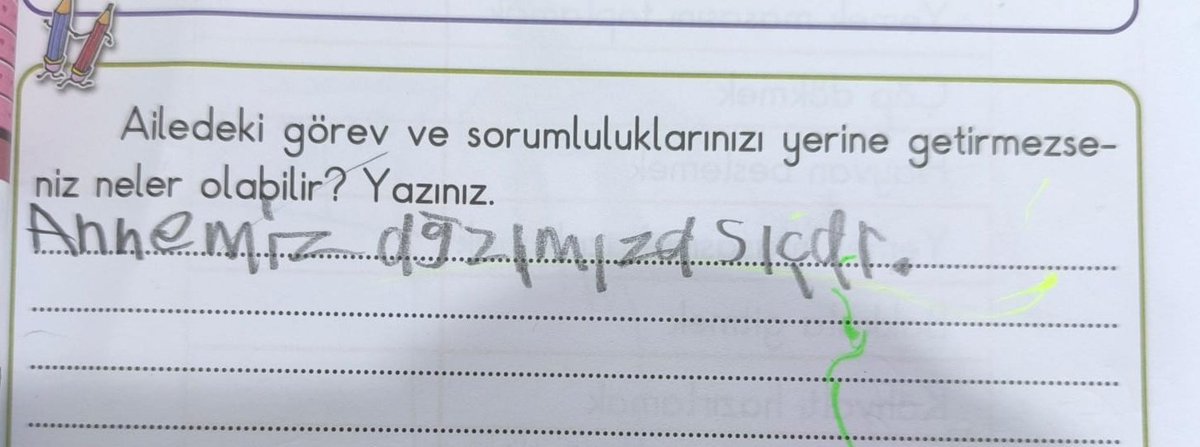 Ailedeki görev ve sorumluluklarınızı yerine getirmezse-
niz neler olabilir? Yazınız.
Annemiz ağzımıza sıçar.